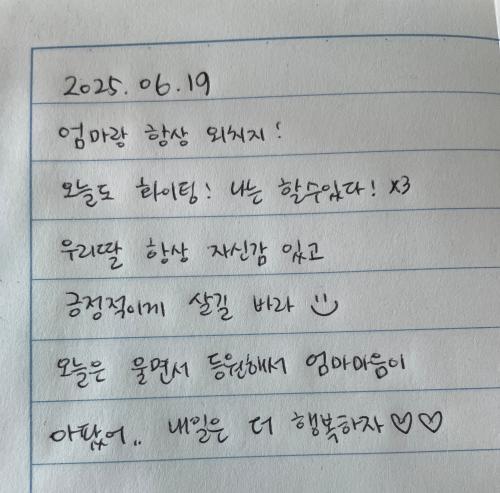 2025. 06. 19
엄마랑 항상 외쳐지!
오늘도 화이팅! 나는 할수있다! x3
우리딸 항상 자신감 있고
긍정적이게 살길 바라 :)
오늘은 울면서 등원해서 엄마마음이
아팠어.. 내일은 더 행복하자 ♡♡